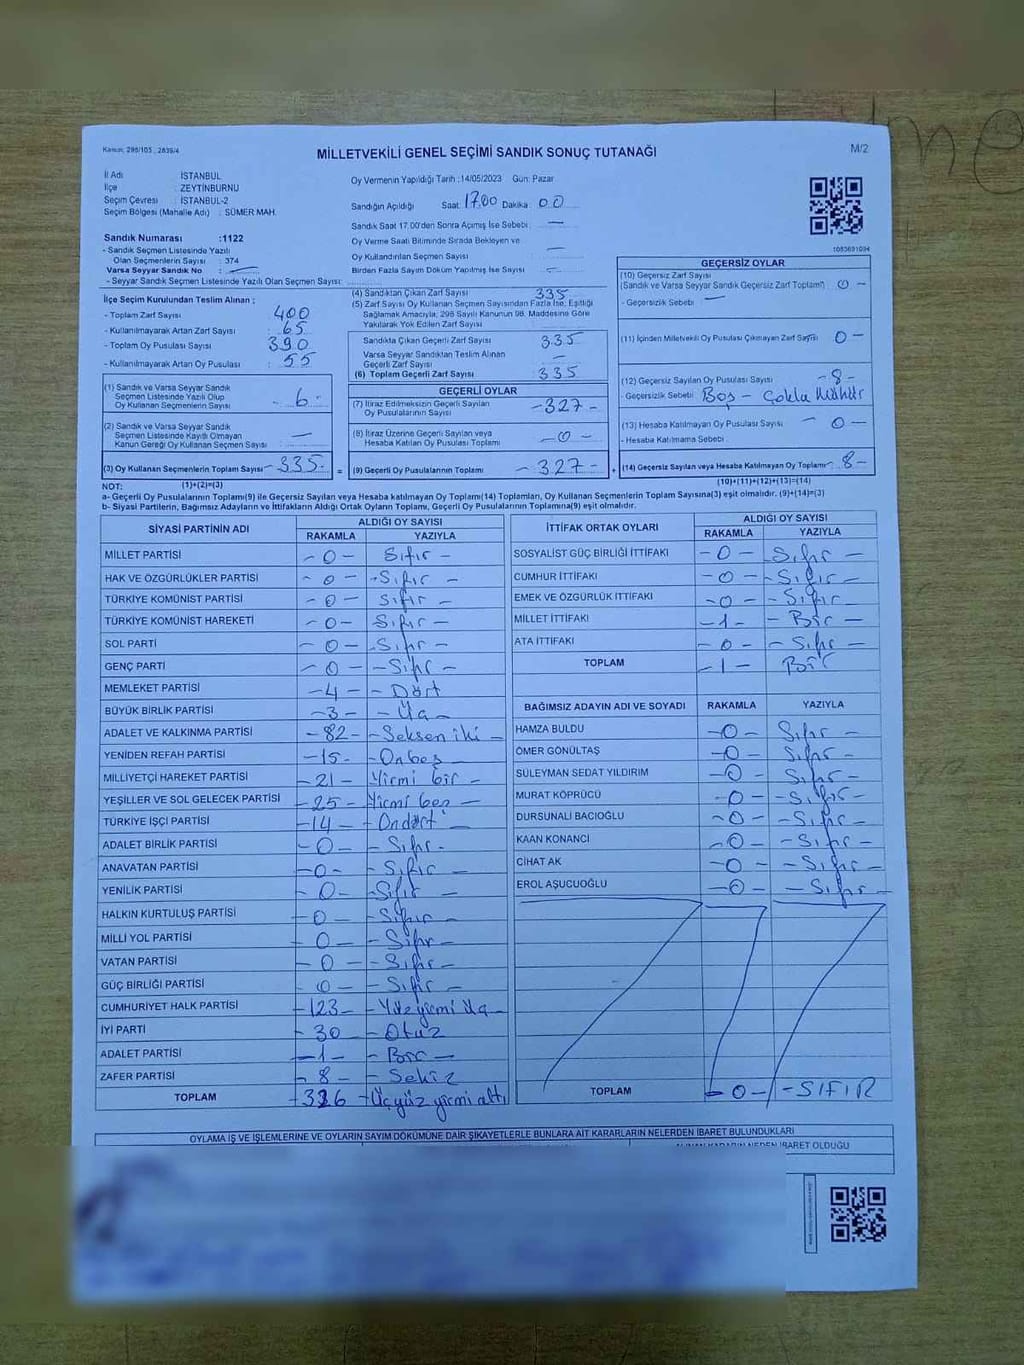 Kanun: 298/105 , 2839/4
MİLLETVEKİLİ GENEL SEÇİMİ SANDIK SONUÇ TUTANAĞI
M/2
İl Adı : İSTANBUL
İlçe : ZEYTİNBURNU
Seçim Çevresi : İSTANBUL-2
Seçim Bölgesi (Mahalle Adı) : SÜMER MAH.
Sandık Numarası :1122
- Sandık Seçmen Listesinde Yazılı
Olan Seçmenlerin Sayısı : 374
Varsa Seyyar Sandık No : —
- Seyyar Sandık Seçmen Listesinde Yazılı Olan Seçmen Sayısı:
Oy Vermenin Yapıldığı Tarih :14/05/2023 Gün: Pazar
Sandığın Açıldığı Saat: 17.00 Dakika: 00
Sandık Saat 17.00'den Sonra Açılmış İse Sebebi: —
Oy Verme Saati Bitiminde Sırada Bekleyen ve
Oy Kullandırılan Seçmen Sayısı —
Birden Fazla Sayım Döküm Yapılmış İse Sayısı —
1083691094
İlçe Seçim Kurulundan Teslim Alınan ;
- Toplam Zarf Sayısı : 400
- Kullanılmayarak Artan Zarf Sayısı : 65
- Toplam Oy Pusulası Sayısı : 390
- Kullanılmayarak Artan Oy Pusulası : 55
(1) Sandık ve Varsa Seyyar Sandık
Seçmen Listesinde Yazılı Olup
Oy Kullanan Seçmenlerin Sayısı : 6 -
(2) Sandık ve Varsa Seyyar Sandık
Seçmen Listesinde Kayıtlı Olmayan
Kanun Gereği Oy Kullanan Seçmen Sayısı: —
(3) Oy Kullanan Seçmenlerin Toplam Sayısı - 335 - =
(4) Sandıktan Çıkan Zarf Sayısı 335
(5) Zarf Sayısı Oy Kullanan Seçmen Sayısından Fazla İse, Eşitliği
Sağlamak Amacıyla, 298 Sayılı Kanunun 98. Maddesine Göre
Yakılarak Yok Edilen Zarf Sayısı
Sandıkta Çıkan Geçerli Zarf Sayısı 335
Varsa Seyyar Sandıktan Teslim Alınan
Geçerli Zarf Sayısı —
(6) Toplam Geçerli Zarf Sayısı : 335
GEÇERLİ OYLAR
(7) İtiraz Edilmeksizin Geçerli Sayılan
Oy Pusulalarının Sayısı - 327 -
(8) İtiraz Üzerine Geçerli Sayılan veya
Hesaba Katılan Oy Pusulası Toplamı - 0 -
(9) Geçerli Oy Pusulalarının Toplamı - 327 - +
GEÇERSİZ OYLAR
(10) Geçersiz Zarf Sayısı
(Sandık ve Varsa Seyyar Sandık Geçersiz Zarf Toplamı) 0 -
- Geçersizlik Sebebi —
(11) İçinden Milletvekili Oy Pusulası Çıkmayan Zarf Sayısı 0 -
(12) Geçersiz Sayılan Oy Pusulası Sayısı - 8 -
- Geçersizlik Sebebi: Boş - Çoklu Mühür
(13) Hesaba Katılmayan Oy Pusulası Sayısı - 0 -
- Hesaba Katılmama Sebebi :
(14) Geçersiz Sayılan veya Hesaba Katılmayan Oy Toplamı - 8 -
NOT: (1)+(2)=(3) (10)+(11)+(12)+(13)=(14)
a- Geçerli Oy Pusulalarının Toplamı(9) ile Geçersiz Sayılan veya Hesaba katılmayan Oy Toplamı(14) Toplamları, Oy Kullanan Seçmenlerin Toplam Sayısına(3) eşit olmalıdır. (9)+(14)=(3)
b- Siyasi Partilerin, Bağımsız Adayların ve İttifakların Aldığı Ortak Oyların Toplamı, Geçerli Oy Pusulalarının Toplamına(9) eşit olmalıdır.
SİYASİ PARTİNİN ADI ALDIĞI OY SAYISI
RAKAMLA YAZIYLA
MİLLET PARTİSİ - 0 - Sıfır -
HAK VE ÖZGÜRLÜKLER PARTİSİ - 0 - - Sıfır -
TÜRKİYE KOMÜNİST PARTİSİ - 0 - Sıfır -
TÜRKİYE KOMÜNİST HAREKETİ - 0 - Sıfır -
SOL PARTİ - 0 - - Sıfır -
GENÇ PARTİ - 0 - - Sıfır -
MEMLEKET PARTİSİ - 4 - - Dört
BÜYÜK BİRLİK PARTİSİ - 3 - - Üç -
ADALET VE KALKINMA PARTİSİ - 82 - - Seksen iki -
YENİDEN REFAH PARTİSİ - 15 - - Onbeş -
MİLLİYETÇİ HAREKET PARTİSİ - 21 - Yirmi bir -
YEŞİLLER VE SOL GELECEK PARTİSİ - 25 - Yirmi beş -
TÜRKİYE İŞÇİ PARTİSİ - 14 - - Ondört -
ADALET BİRLİK PARTİSİ - 0 - - Sıfır -
ANAVATAN PARTİSİ - 0 - - Sıfır -
YENİLİK PARTİSİ - 0 - - Sıfır -
HALKIN KURTULUŞ PARTİSİ - 0 - - Sıfır -
MİLLİ YOL PARTİSİ - 0 - - Sıfır -
VATAN PARTİSİ - 0 - - Sıfır -
GÜÇ BİRLİĞİ PARTİSİ - 0 - - Sıfır -
CUMHURİYET HALK PARTİSİ - 123 - - Yüz yirmi üç -
İYİ PARTİ - 30 - - Otuz
ADALET PARTİSİ - 1 - - Bir -
ZAFER PARTİSİ - 8 - - Sekiz
TOPLAM - 326 - Üçyüz yirmi altı
İTTİFAK ORTAK OYLARI ALDIĞI OY SAYISI
RAKAMLA YAZIYLA
SOSYALİST GÜÇ BİRLİĞİ İTTİFAKI - 0 - Sıfır -
CUMHUR İTTİFAKI - 0 - - Sıfır -
EMEK VE ÖZGÜRLÜK İTTİFAKI - 0 - - Sıfır -
MİLLET İTTİFAKI - 1 - - Bir -
ATA İTTİFAKI - 0 - - Sıfır -
TOPLAM - 1 - Bir
BAĞIMSIZ ADAYIN ADI VE SOYADI RAKAMLA YAZIYLA
HAMZA BULDU - 0 - Sıfır -
ÖMER GÖNÜLTAŞ - 0 - Sıfır -
SÜLEYMAN SEDAT YILDIRIM - 0 - Sıfır -
MURAT KÖPRÜCÜ - 0 - - Sıfır -
DURSUNALİ BACIOĞLU - 0 - - Sıfır -
KAAN KONANCİ - 0 - - Sıfır -
CİHAT AK - 0 - - Sıfır -
EROL AŞUCUOĞLU - 0 - - Sıfır -
TOPLAM - 0 - - SIFIR
OYLAMA İŞ VE İŞLEMLERİNE VE OYLARIN SAYIM DÖKÜMÜNE DAİR ŞİKAYETLERLE BUNLARA AİT KARARLARIN NELERDEN İBARET BULUNDUKLARI
ALINAN KARARIN NEDEN İBARET OLDUĞU